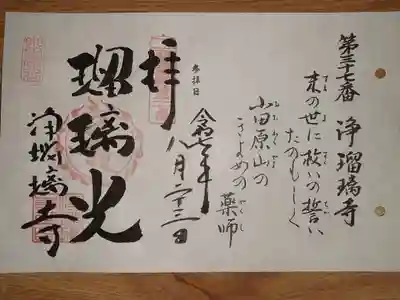 第三十七番 浄瑠璃寺
末の世に救いの誓い
たのもしく
小田原山の
きよめの 薬師
参拝日
令和七年
八月二十三日
拝
瑠璃光
浄瑠璃寺